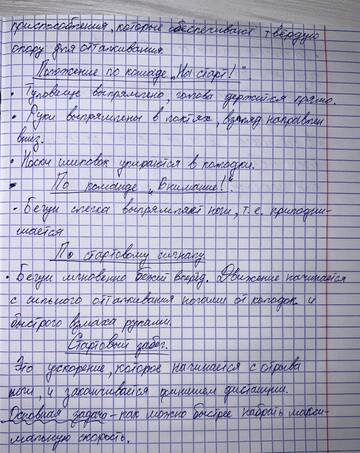 приспособления, которые обеспечивают твёрдую
опору для отталкивания.
Положение по команде „На старт!"
• Туловище выпрямлено, голова держится прямо.
• Руки выпрямлены в локтях, взгляд направлен
вниз.
• Носки шиповок упираются в колодки.
- По команде „Внимание!".
• Бегун слегка выпрямляет ноги, т.е. приподни-
мается
По стартовому сигналу
• Бегун мгновенно бежит вперёд. Движение начинается
с сильного отталкивания ногами от колодок и
быстрого взмаха руками.
Стартовый забег.
Это ускорение, которое начинается с отрыва
ноги, и заканчивается финишем дистанции.
Основная задача - как можно быстрее набрать макси-
мальную скорость.